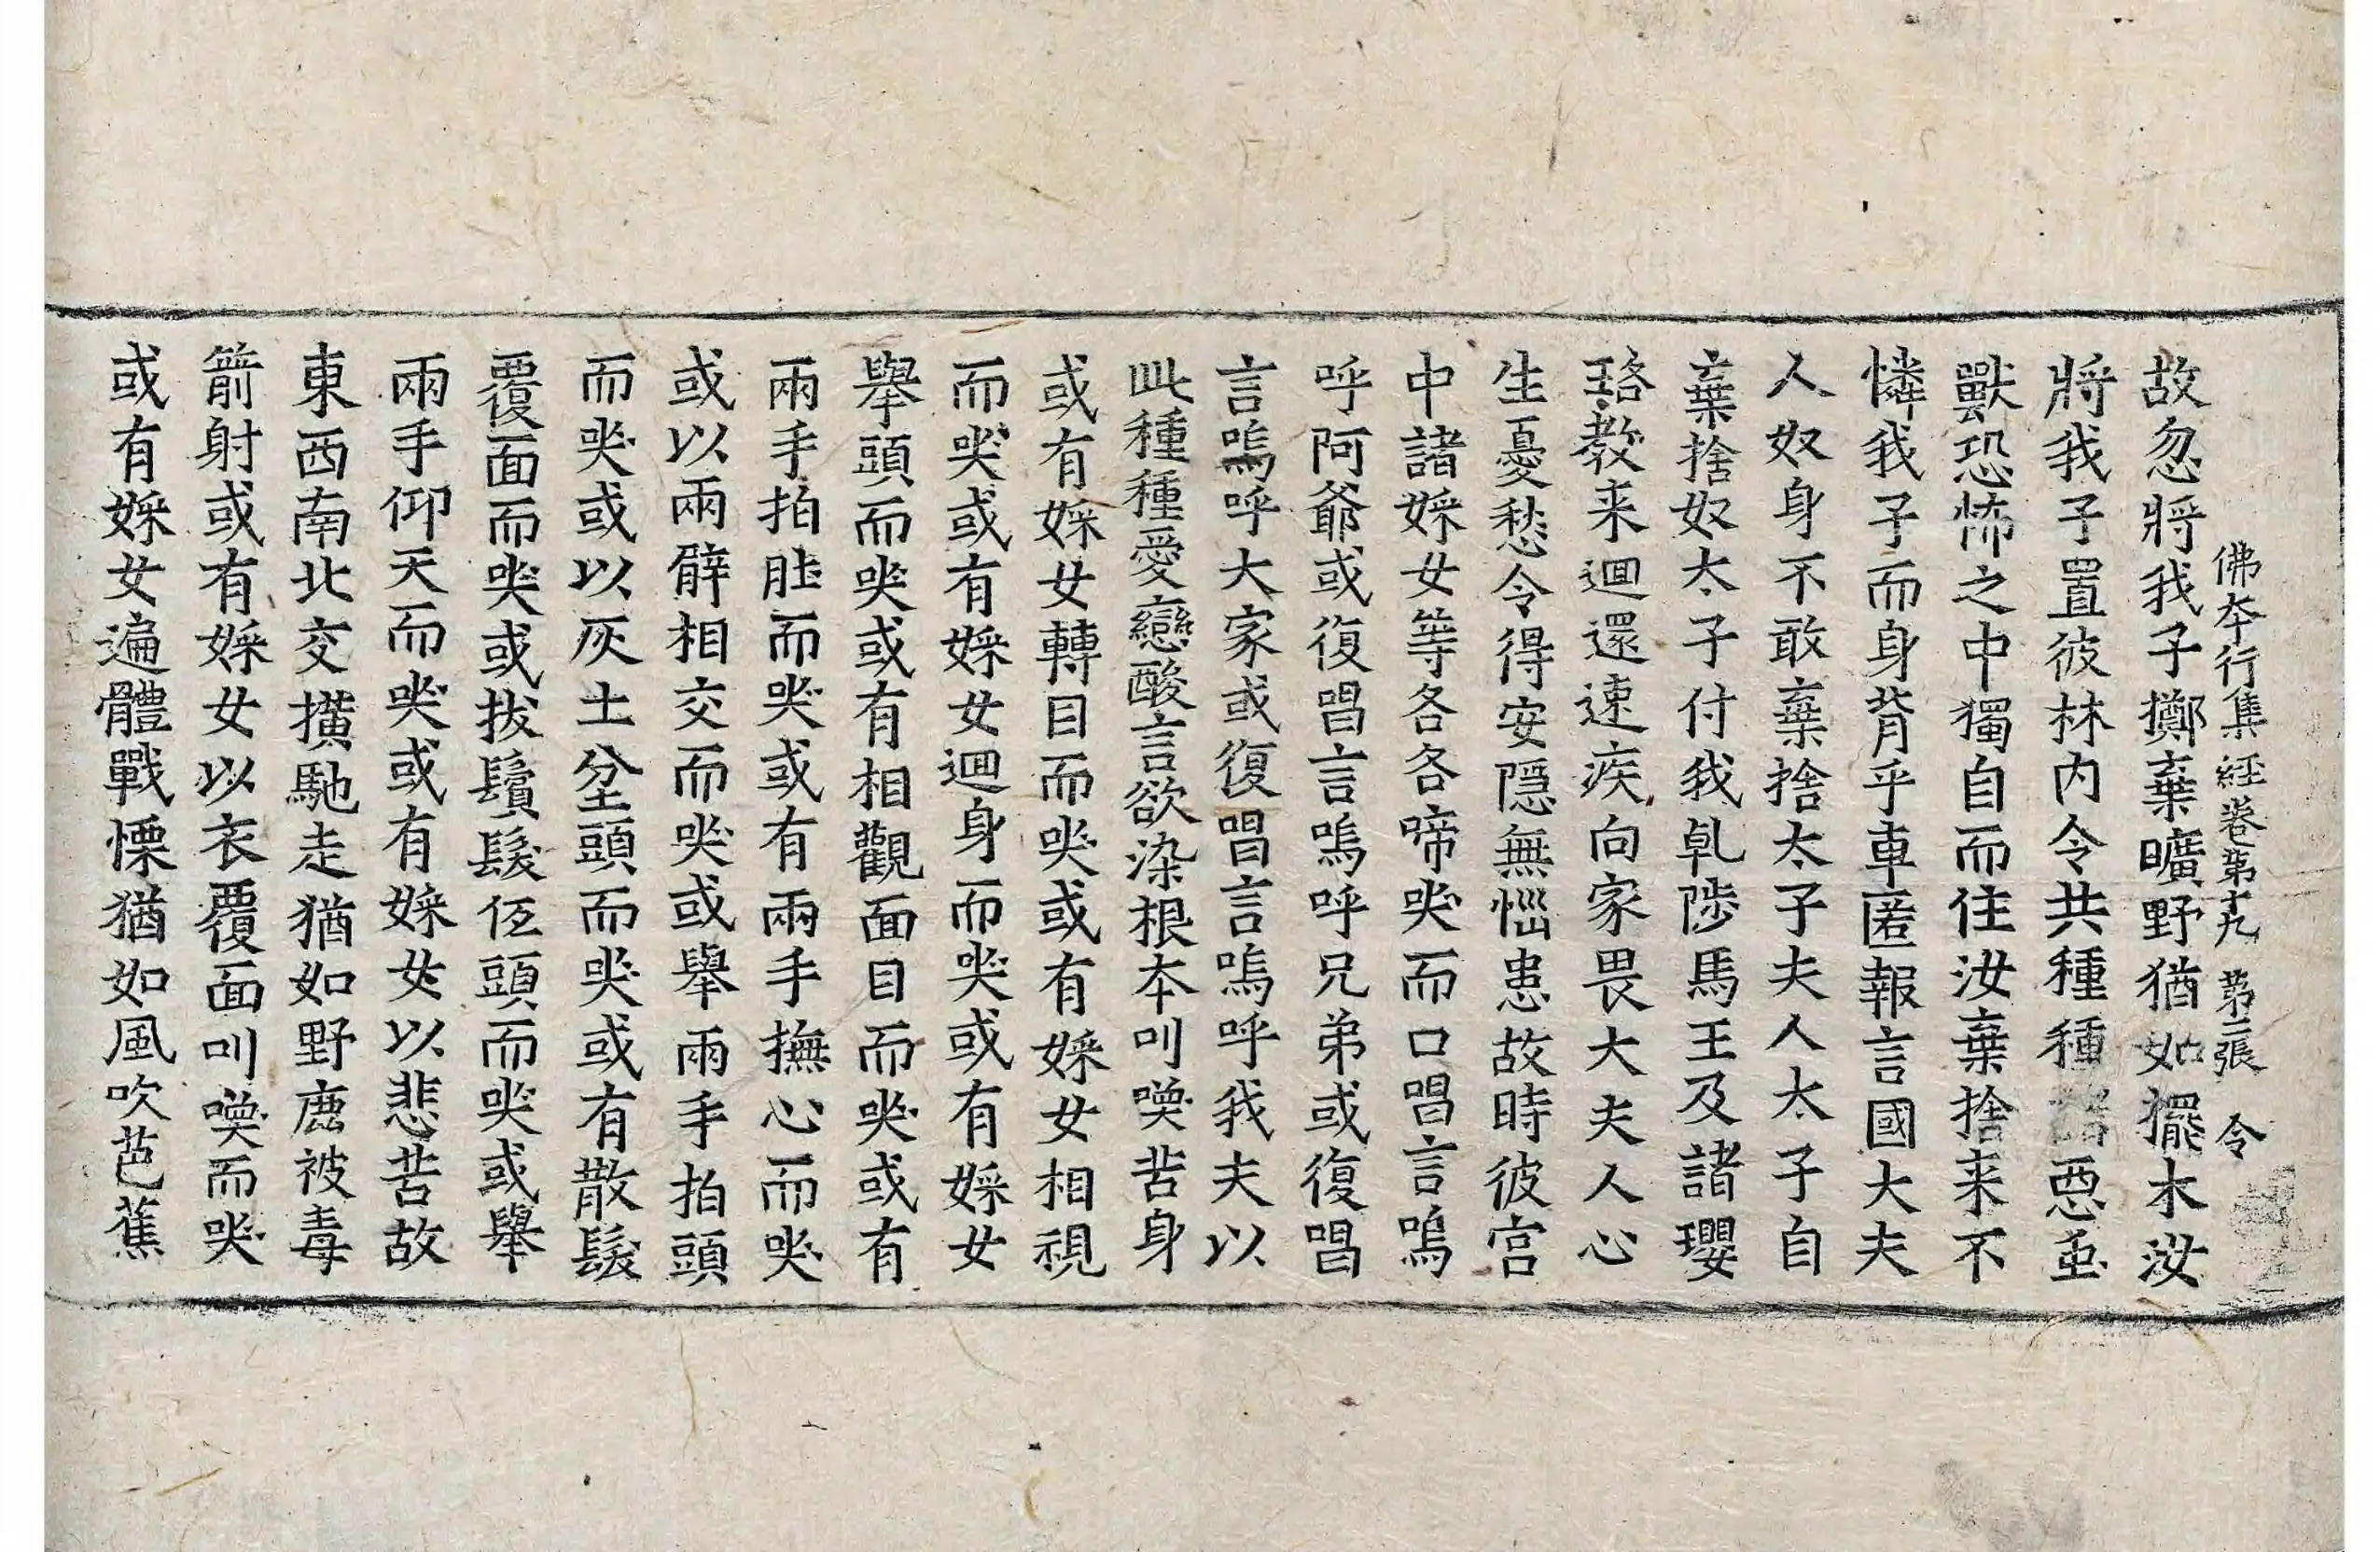 佛本行集經卷第十九 第二張 令
故忽將我子擲棄曠野猶如擺木汝
將我子置彼林内令共種種諸惡虫
獸恐怖之中獨自而住汝棄捨来不
憐我子而身背乎車匿報言國大夫
人奴身不敢棄捨太子夫人太子自
棄捨奴太子付我乹陟馬王及諸瓔
珞教来迴還速疾向家畏大夫人心
生憂愁令得安隱無惱患故時彼宫
中諸婇女等各各啼哭而口唱言嗚
呼阿爺或復唱言嗚呼兄弟或復唱
言嗚呼大家或復唱言嗚呼我夫以
此種種愛戀酸言欲染根本叫喚苦身
或有婇女轉目而哭或有婇女相視
而哭或有婇女迴身而哭或有婇女
舉頭而哭或有相觀面目而哭或有
兩手拍䏶而哭或有兩手撫心而哭
或以兩臂相交而哭或舉兩手拍頭
而哭或以灰土坌頭而哭或有散髮
覆面而哭或拔鬚髮伍頭而哭或舉
兩手仰天而哭或有婇女以悲苦故
東西南北交撗馳走猶如野鹿被毒
箭射或有婇女以衣覆面叫喚而哭
或有婇女遍體戰慄猶如風吹芭蕉